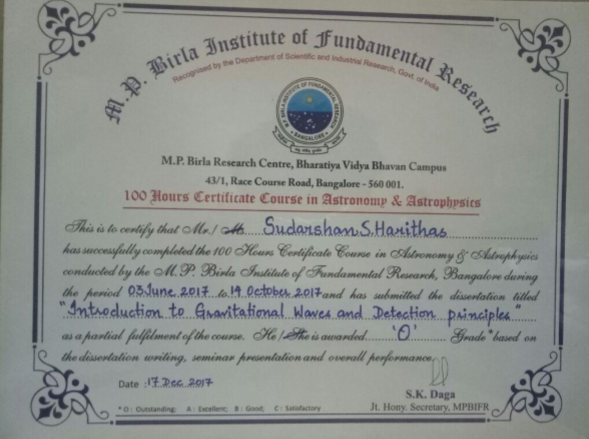 M.P. Birla Institute of Fundamental Research
Recognised by the Department of Scientific and Industrial Research, Govt. of India
M.P. BIRLA INSTITUTE OF FUNDAMENTAL RESEARCH
BANGALORE
M.P. Birla Research Centre, Bharatiya Vidya Bhavan Campus
43/1, Race Course Road, Bangalore - 560 001.
100 Hours Certificate Course in Astronomy & Astrophysics
This is to certify that Mr./ Ms. Sudarshan.S.Harithas
has successfully completed the 100 Hours Certificate Course in Astronomy & Astrophysics
conducted by the M. P. Birla Institute of Fundamental Research, Bangalore during
the period 03 June 2017 to 14 October 2017 and has submitted the dissertation titled
"Introduction to Gravitational Waves and Detection principles"
as a partial fulfilment of the course. He/She is awarded 'O' Grade* based on
the dissertation writing, seminar presentation and overall performance.
Date : 17 Dec 2017
S.K. Daga
* O : Outstanding; A : Excellent; B : Good; C : Satisfactory
Jt. Hony. Secretary, MPBIFR